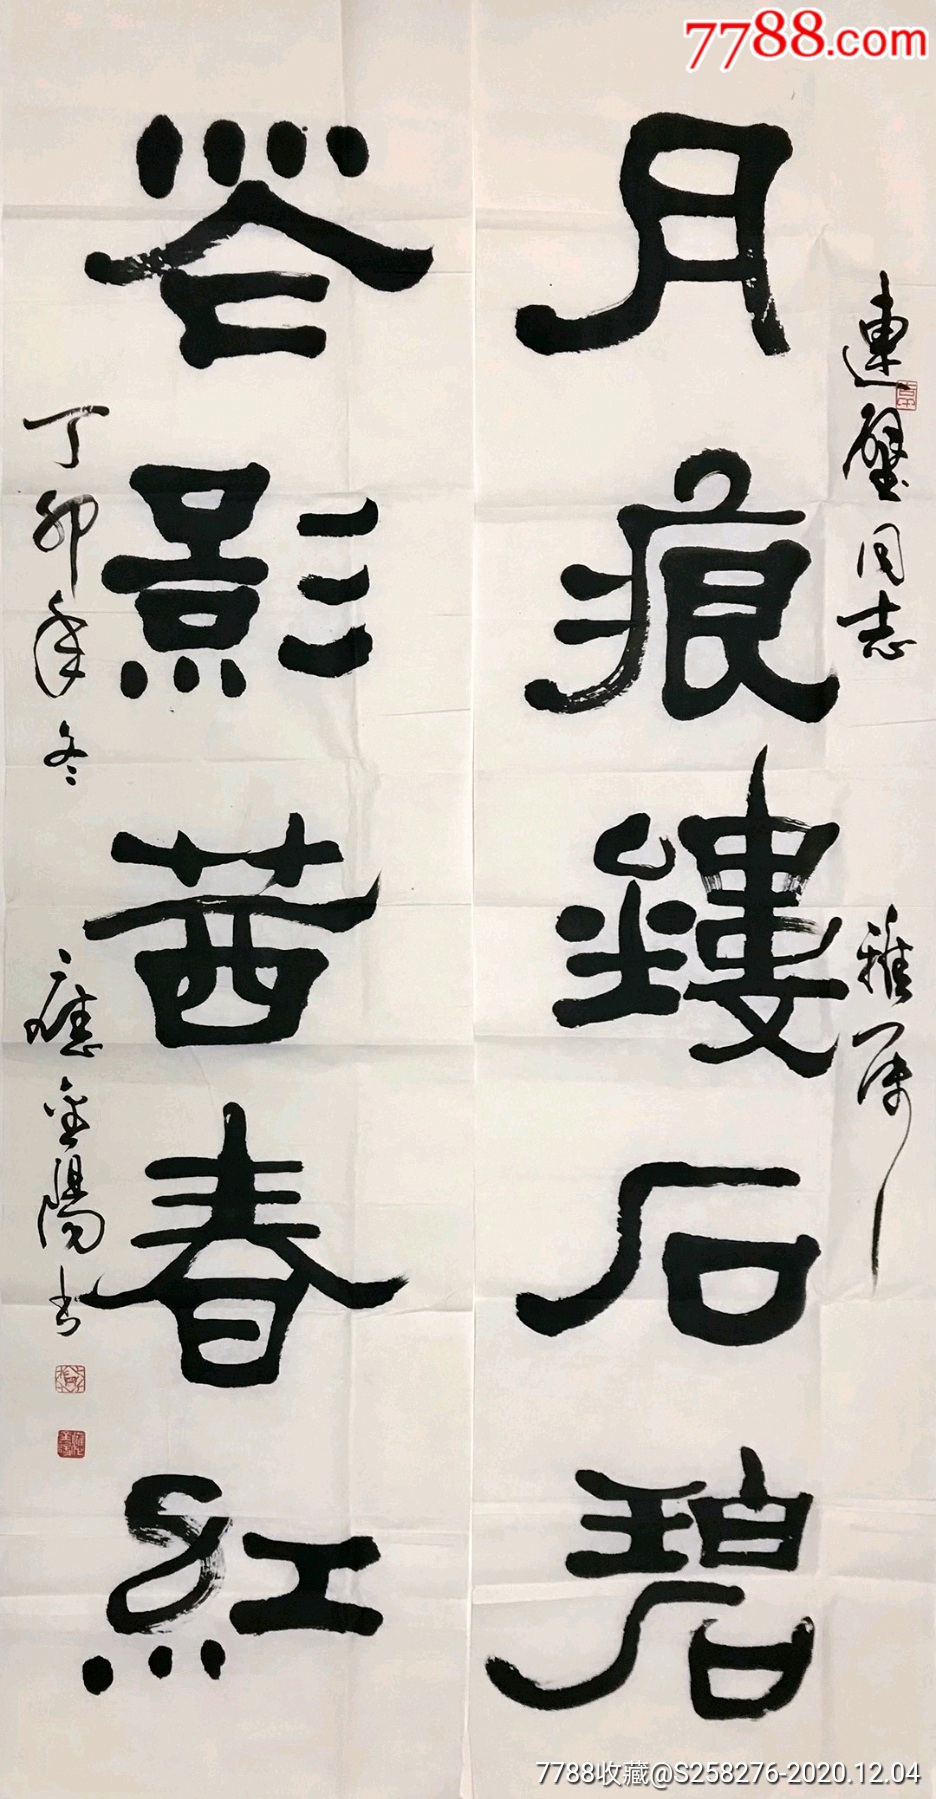 7788.com
連璧同志
雅屬
月痕鏤石碧
花影茜春紅
丁卯年冬
應金陽書
7788收藏@S258276-2020.12.04